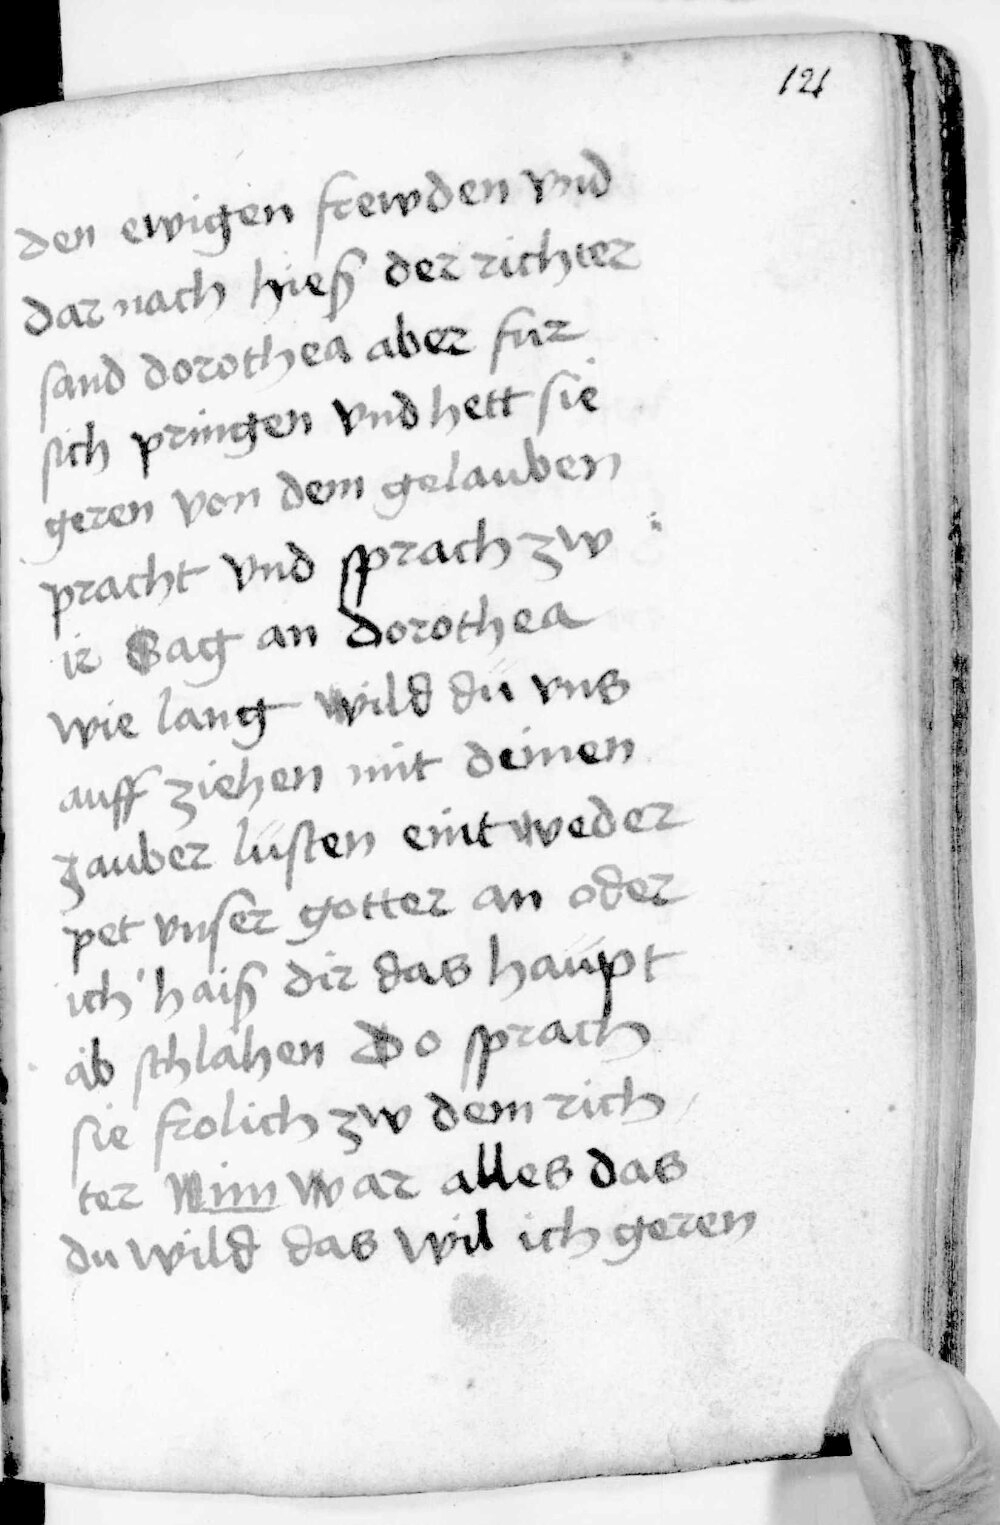 121
den ewigen frewden vnd
dar nach hieß der richter
sand dorothea aber fur
sich pringen vnd hett sie
geren von dem gelauben
pracht vnd sprach zw
ir Sag an dorothea
wie lang wild dü vns
auff ziehen mit deinen
zauber lüsten eintweder
pet vnser gotter an oder
ich haiß dir das haüpt
ab schlahen Do sprach
sie frolich zw dem rich
ter Nim war alles das
du wild das wil ich geren